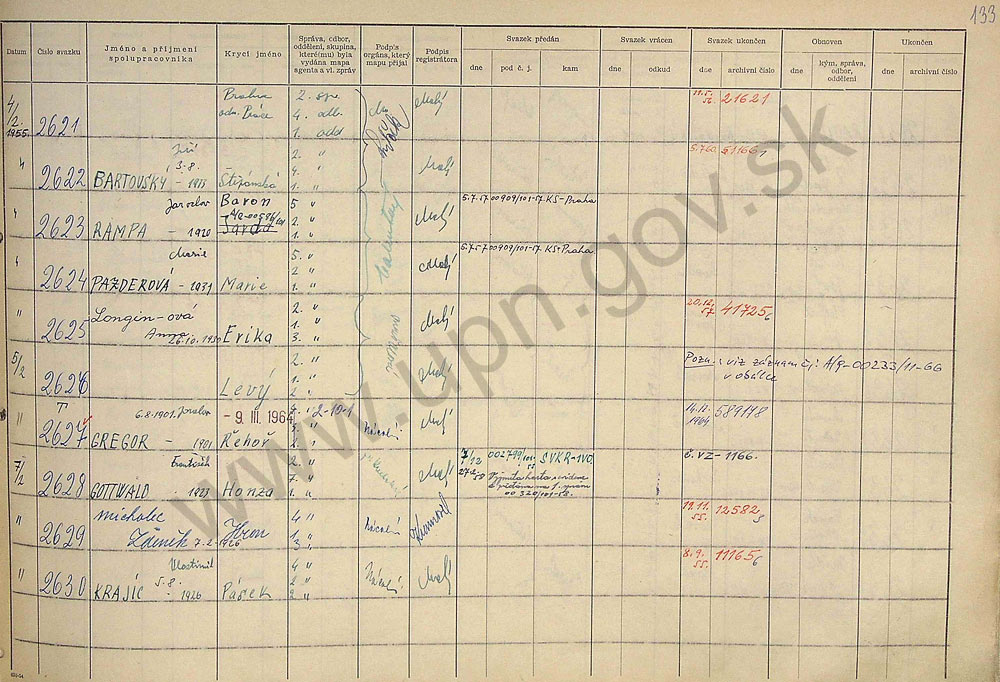 133
Datum
Číslo svazku
Jméno a příjmení spolupracovníka
Krycí jméno
Správa, odbor, oddělení, skupina, které(mu) byla vydána mapa agenta a vl. zpráv
Podpis orgána, který mapu přijal
Podpis registrátora
Svazek předán
dne
pod č. j.
kam
Svazek vrácen
dne
odkud
Svazek ukončen
dne
archivní číslo
Obnoven
dne
kým, správa, odbor, oddělení
Ukončen
dne
archivní číslo
4/2. 1955
2621
2. spr.
4. odb.
1. odd
Malý
21621
2622
Jiří
3.8.
BARTOVSKÝ - 1935
Štěpánská
2. "
4. "
1. "
Malý
2623
Jaroslav
RAMPA - 1920
Baron
5 "
2. "
1. "
Malý
5.7.57
00909/101-57
KS-Praha
2624
Marie
PAŽDEROVÁ - 1931
Marie
5. "
2 "
1. "
Malý
5.7.57
00909/101-57
KS-Praha
2625
Longin-ová
Anna
26.10.1930
Erika
2. "
1. "
3. "
Malý
20.12. 57
41725
5/2
2626
Levý
2. "
1. "
Malý
Pozn.: viz záznam čj: A/9-00233/11-66
v obálce
2627
6.8.1901
GREGOR - 1901
- 9. III. 1964
Řehoř
Malý
1964
589178
7/2
2628
František
GOTTWALD - 1923
Honza
2. "
7. "
1. "
Malý
002799/101-55
SVKR-IVO.
č. VZ-1166.
2629
Michalec
Zdeněk 7.2.1926
Hron
4 "
1 "
3. "
19.11. 55.
12582
2630
Vlastimil
KRAJÍC 5.8. - 1926
Pásek
4 "
2 "
2 "
Malý
8.9. 55.
11165
www.upn.gov.sk